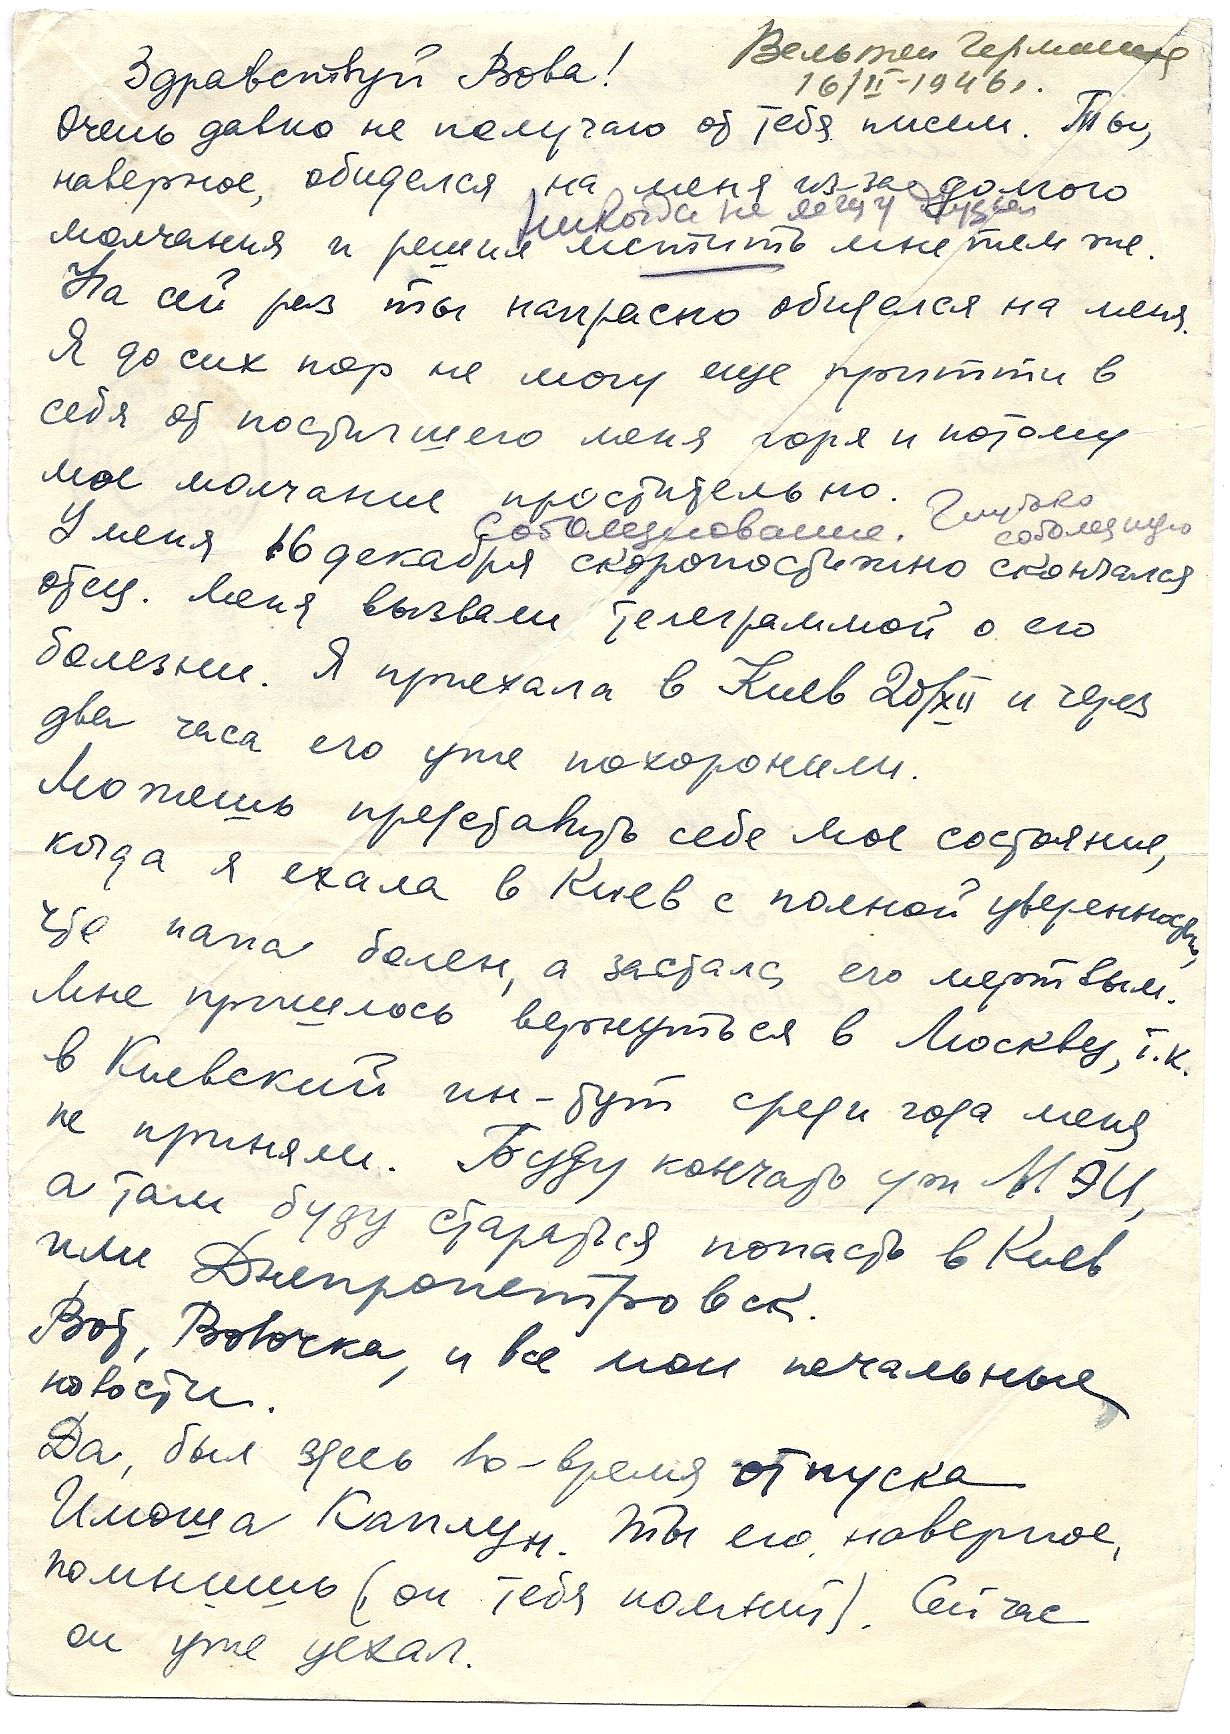 Вельтен Германия
16/II-1946г.
Здравствуй Вова!
Очень давно не получаю от тебя писем. Ты,
наверное, обиделся на меня из-за долгого
Никогда не мщу друзьям
молчания и решил мстить мне тем же.
На сей раз ты напрасно обиделся на меня.
Я до сих пор не могу еще притти в
себя от постигшего меня горя и потому
мое молчание простительно.
Соболезнование. Глубоко
соболезную
У меня 16 декабря скоропостижно скончался
отец. Меня вызвали телеграммой о его
болезни. Я приехала в Киев 20/XII и через
два часа его уже похоронили.
Можешь представить себе мое состояние,
когда я ехала в Киев с полной уверенностью,
что папа болен, а застала его мертвым.
Мне пришлось вернуться в Москву, т.к.
в Киевский ин-тут среди года меня
не приняли. Буду кончать уж МЭИ,
а там буду стараться попасть в Киев
или Днепропетровск.
Вот, Вовочка, и все мои печальные
новости.
Да, был здесь во-время отпуска
Имоша Каплун. Ты его, наверное,
помнишь (он тебя помнит). Сейчас
он уже уехал.